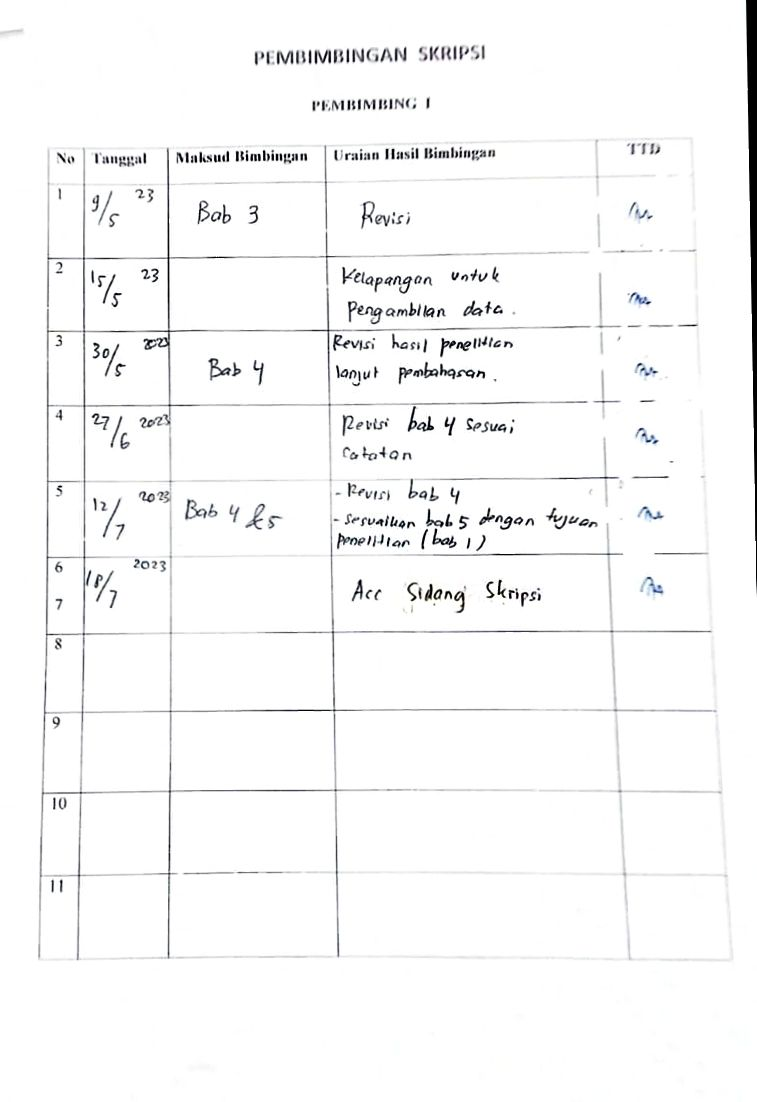 PEMBIMBINGAN SKRIPSI
PEMBIMBING I
No Tanggal Maksud Bimbingan Uraian Hasil Bimbingan TTD
1 9/5 23 Bab 3 Revisi
2 15/5 23 Kelapangan untuk
Pengambilan data.
3 30/5 2023 Bab 4 Revisi hasil penelitian
lanjut pembahasan.
4 27/6 2023 Revisi bab 4 sesuai
Catatan
5 12/7 2023 Bab 4 & 5 - Revisi bab 4
- Sesuaikan bab 5 dengan tujuan
penelitian (bab 1)
6 18/7 2023 Acc Sidang Skripsi
7
8
9
10
11